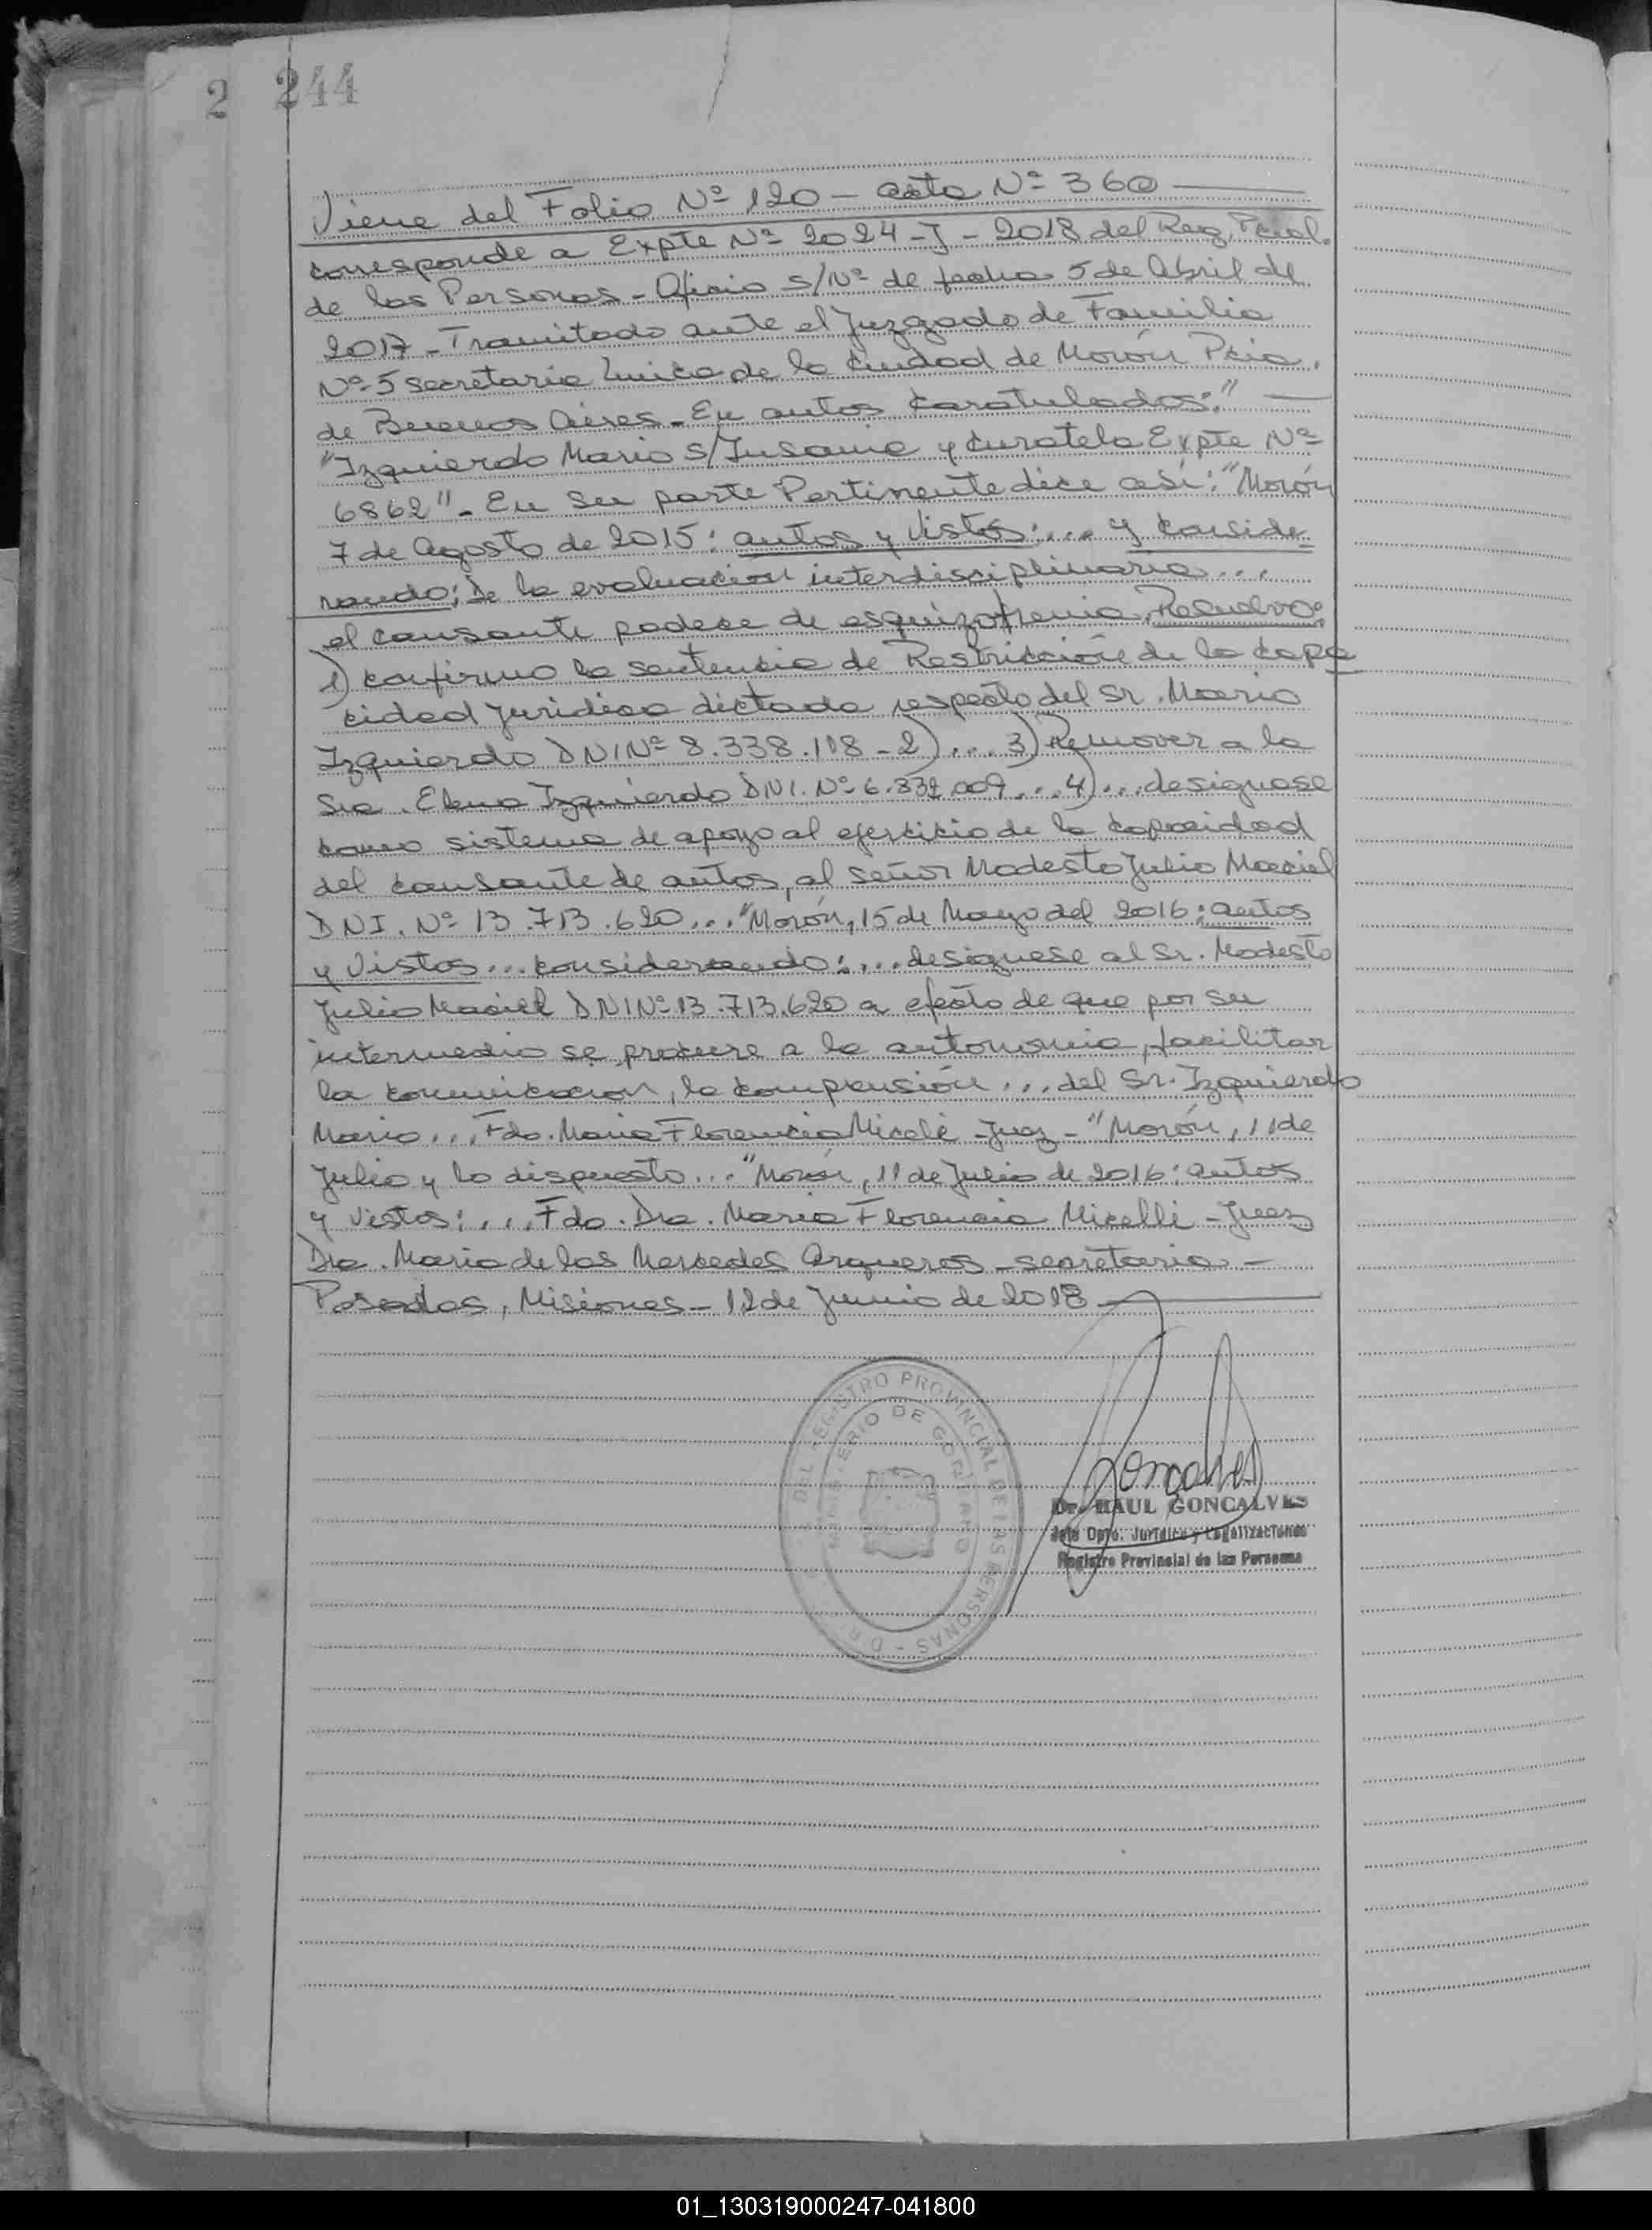 2 244
Viene del Folio Nº 120 - acta Nº 360
corresponde a Expte Nº 2024-J-2018 del Reg. Pcial.
de las Personas - Oficio s/Nº de fecha 5 de Abril del
2017 - Tramitado ante el Juzgado de Familia
Nº 5 secretaria Unica de la Ciudad de Morón Pcia.
de Buenos Aires - En autos Caratulados:"
"Izquierdo Mario s/Insania y Curatela Expte Nº
6862" - En su parte Pertinente dice así: "Morón
7 de Agosto de 2015: autos y Vistos: ... y Conside
rando; De la evaluación interdisciplinaria ...
el causante padece de esquizofrenia, Resuelvo:
1) Confirmo la sentencia de Restricción de la Capa
cidad Juridica dictada respecto del Sr. Mario
Izquierdo DNI Nº 8.338.118 - 2) ... 3) Remover a la
Sra. Elena Izquierdo DNI. Nº 6. ... 4) ... designase
como sistema de apoyo al ejercicio de la capacidad
del causante de autos, al señor Modesto Julio Maciel
DNI. Nº 13.713.620 ... "Morón, 15 de Mayo del 2016: autos
y Vistos ... considerando: ... designese al Sr. Modesto
Julio Maciel DNI Nº 13.713.620 a efecto de que por su
intermedio se procure a la autonomia, facilitar
la comunicacion, la compensión ... del Sr. Izquierdo
Mario ... Fdo. Maria Florencia Micele - Juez - "Morón, 11 de
Julio y lo dispuesto ... "Morón, 11 de Julio de 2016: autos
y Vistos: ... Fdo. Dra. Maria Florencia Micelli - Juez
Dra. Maria de las Mercedes Arqueros - secretaria -
Posadas, Misiones - 12 de Junio de 2018
DEL REGISTRO PROVINCIAL DE LAS PERSONAS
MINISTERIO DE GOBIERNO
Goncalves
Dr. RAUL GONCALVES
Jefe Dpto. Jurídico y Legalizaciones
Registro Provincial de las Personas
01_130319000247-041800